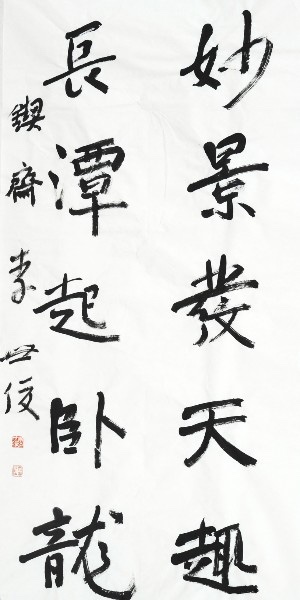 妙景發天趣
長潭起卧龍
鍥齋李世俊